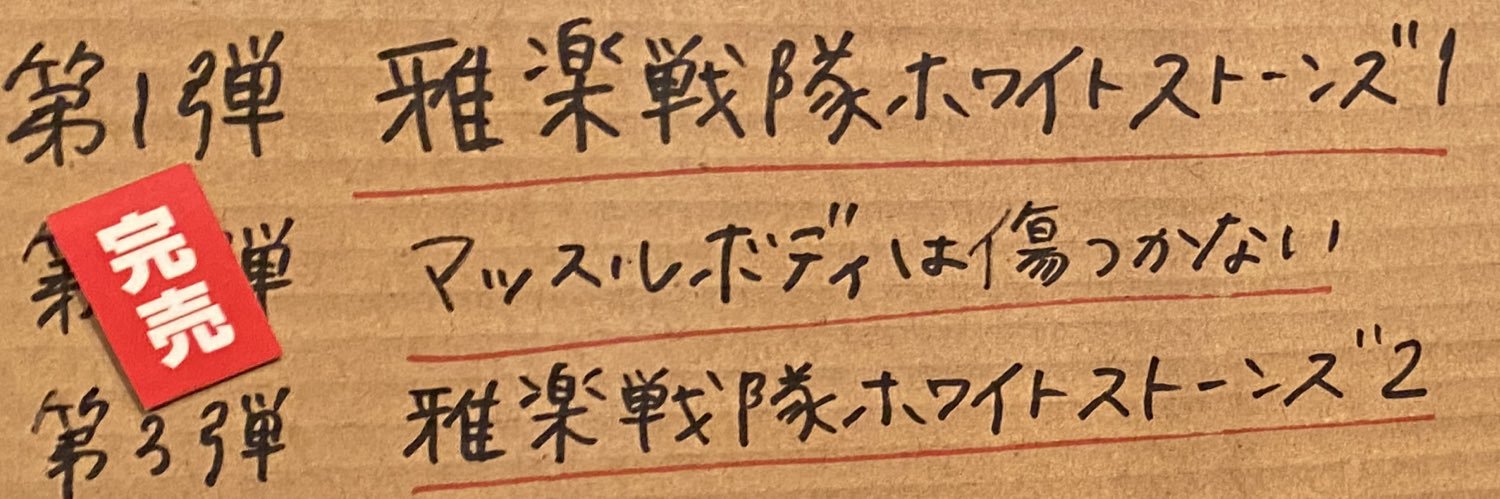 第1弾 雅楽戦隊ホワイトストーンズ1
完売
弾 マッスルボディは傷つかない
第3弾 雅楽戦隊ホワイトストーンズ2